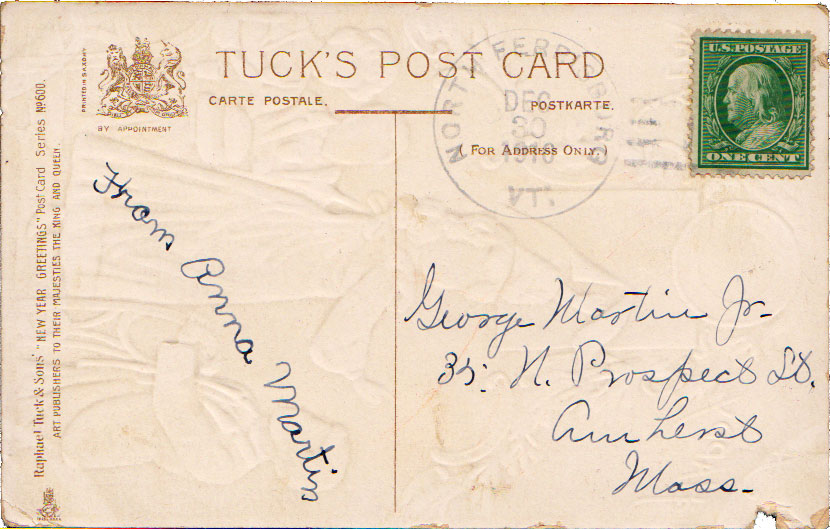 TUCK'S POST CARD
CARTE POSTALE.
POSTKARTE.
(FOR ADDRESS ONLY.)
PRINTED IN SAXONY
BY APPOINTMENT
NORTH FERRISBURG
DEC
30
VT.
U.S. POSTAGE
ONE CENT
Raphael Tuck & Sons' "NEW YEAR GREETINGS" Post Card Series No 600.
ART PUBLISHERS TO THEIR MAJESTIES THE KING AND QUEEN.
From Anna Martin
George Martin Jr.
35. N. Prospect St.
Amherst
Mass.